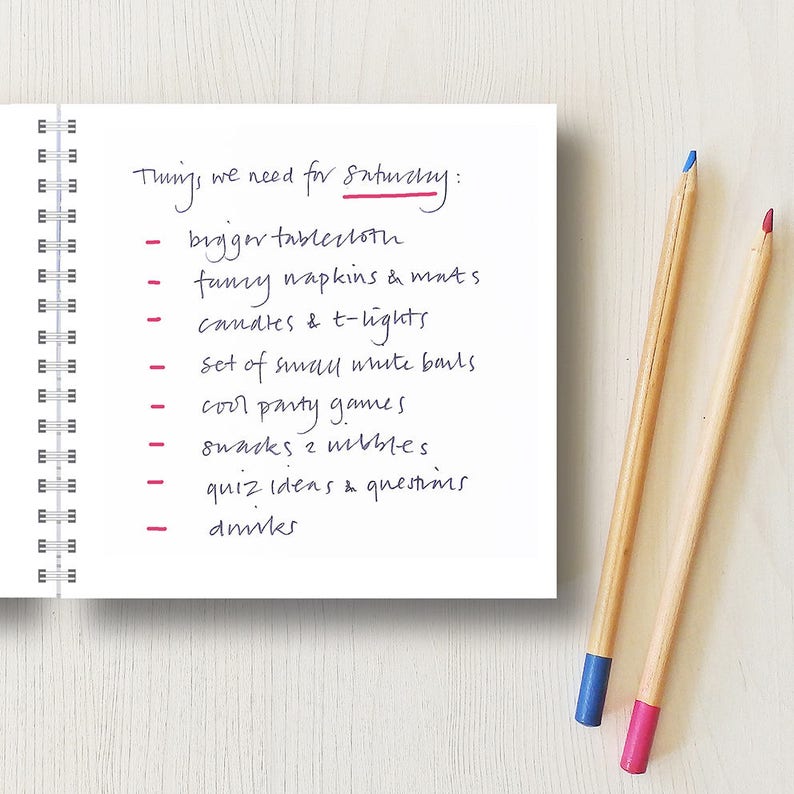 Things we need for Saturday:
- bigger tablecloth
- fancy napkins & mats
- candles & t-lights
- set of small white bowls
- cool party games
- snacks & nibbles
- quiz ideas & questions
- drinks